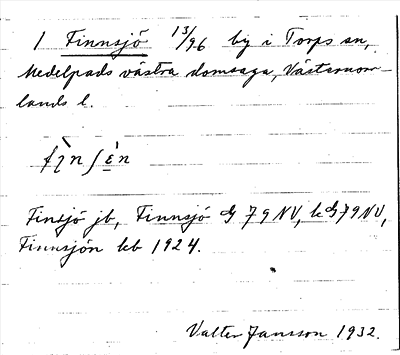 1 Finnsjö 13/96 by i Torps sn,
Medelpads västra domsaga, Västernorr-
lands l.
Finsjö jb, Finnsjö G 79 NV, k G 79 NV,
Finnsjön kb 1924.
Valter Jansson 1932.